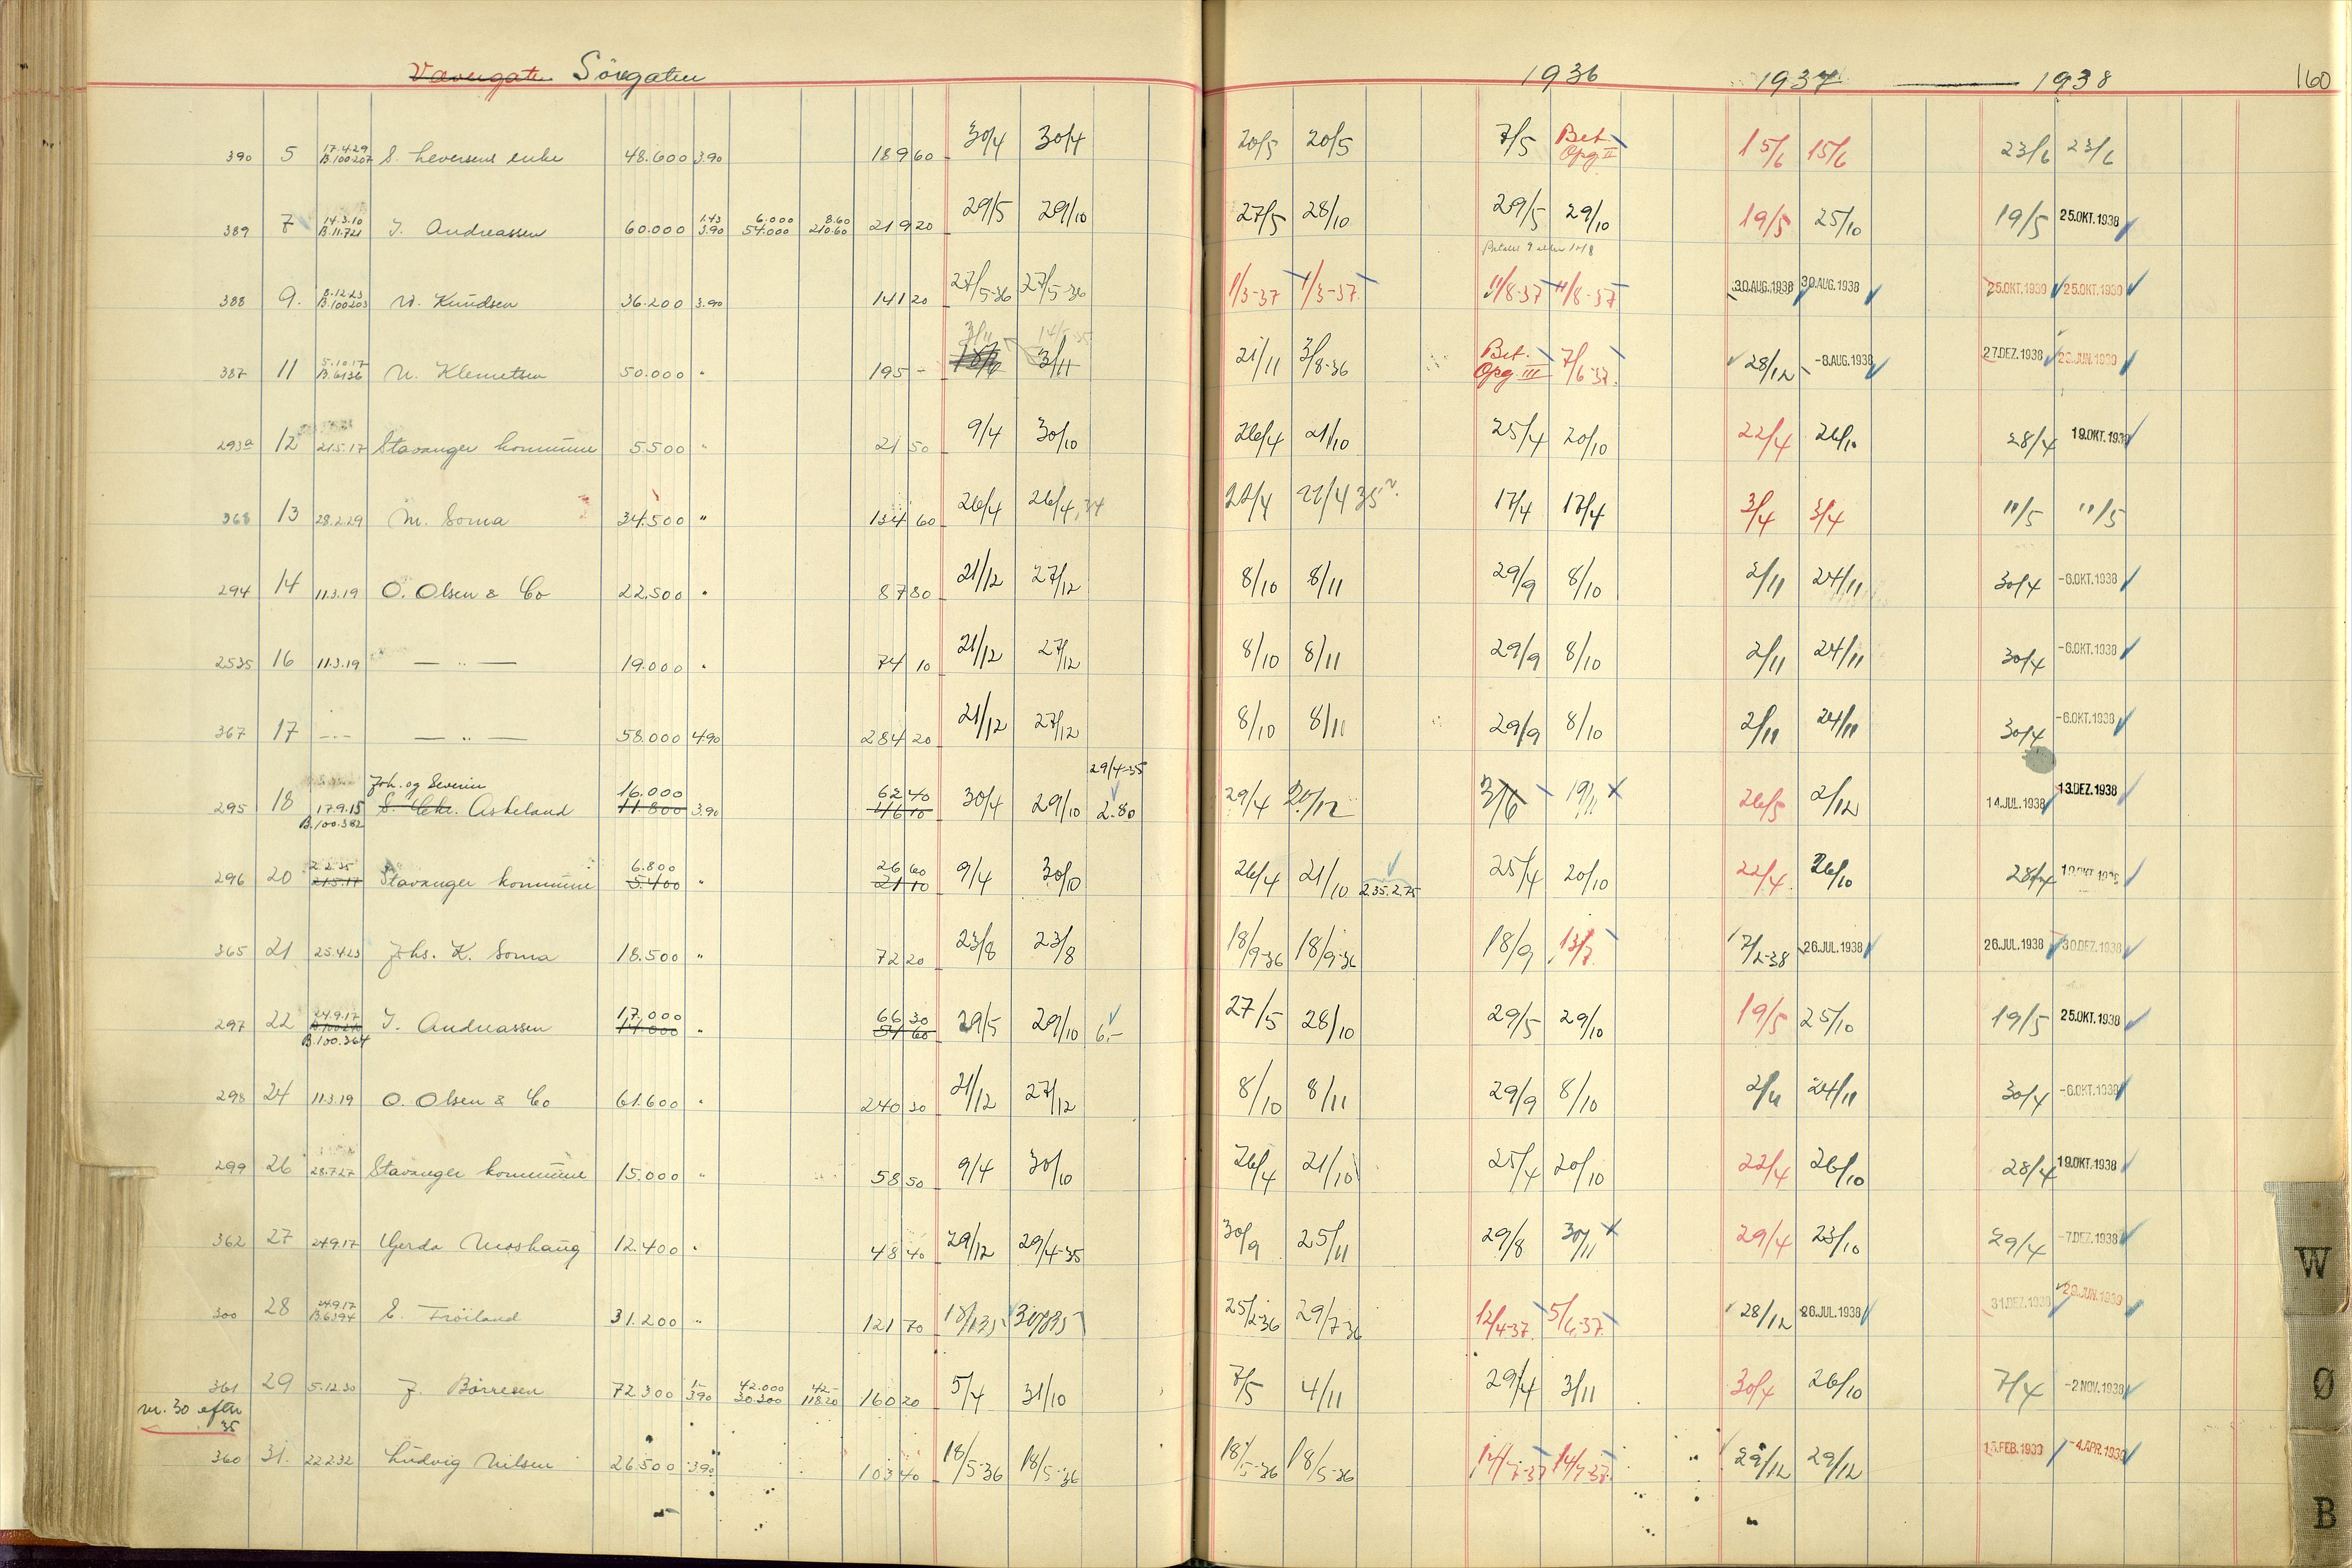 Vævergaten Sörgaten 1936 1937 1938 160
390 5 17.4.29 B.100207 S. Leversens enke 48.600 3.90 189 60 30/4 30/4 20/5 20/5 7/5 Bet. Opg II 15/6 15/6 23/6 23/6
389 7 14.3.10 B.11.721 I. Andreassen 60.000 1.43 3.90 6.000 54.000 8.60 210.60 219 20 29/5 29/10 27/5 28/10 29/5 29/10 19/5 25/10 19/5 25.OKT.1938
388 9. 8.12.23 B.100203 W. Knudsen 36.200 3.90 141 20 27/5-36 27/5-36 1/3-37 1/3-37 11/8-37 11/8-37 30.AUG.1938 30.AUG.1938 25.OKT.1939 25.OKT.1939
387 11 5.10.17 B.6136 N. Klemetsen 50.000 " 195 - 3/11 14/5-35 3/11 21/11 3/8-36 Bet. Opg. III 7/6-37. 28/12 -8.AUG.1938 27.DEZ.1938 23.JUN.1939
293a 12 21.5.17 Stavanger kommune 5.500 " 21 50 9/4 30/10 26/4 21/10 25/4 20/10 22/4 26/10 28/4 19.OKT.1938
368 13 28.2.29 M. Soma 34.500 " 134 60 26/4 26/4,34 22/4 22/4 35 17/4 17/4 3/4 3/4 11/5 11/5
294 14 11.3.19 O. Olsen & Co 22.500 " 87 80 21/12 27/12 8/10 8/11 29/9 8/10 2/11 24/11 30/4 -6.OKT.1938
2535 16 11.3.19 — " — 19.000 " 74 10 21/12 27/12 8/10 8/11 29/9 8/10 2/11 24/11 30/4 -6.OKT.1938
367 17 — " — — " — 58.000 4.90 284 20 21/12 27/12 8/10 8/11 29/9 8/10 2/11 24/11 30/4 -6.OKT.1938
29/4-35
Joh. og Severin 16.000 62 40
295 18 17.9.15 B.100.382 Askeland 11.800 3.90 46 10 30/4 29/10 2.80 29/4 20/12 3/6 19/11 x 26/5 2/12 14.JUL.1938 13.DEZ.1938
2.2.35 6.800 26 60
296 20 21.5.17 Stavanger kommune 5.400 " 21 10 9/4 30/10 26/4 21/10 2.35.2.75 25/4 20/10 22/4 26/10 28/4 19.OKT.1938
365 21 25.4.23 Johs. K. Soma 18.500 " 72 20 23/8 23/8 18/9-36 18/9-36 18/9 13/7 7/2-38 26.JUL.1938 26.JUL.1938 30.DEZ.1938
24.9.17 17.000 66 30
297 22 B.100.364 I. Andreassen 14.000 " 54 60 29/5 29/10 6.- 27/5 28/10 29/5 29/10 19/5 25/10 19/5 25.OKT.1938
298 24 11.3.19 O. Olsen & Co 61.600 " 240 30 21/12 27/12 8/10 8/11 29/9 8/10 2/11 24/11 30/4 -6.OKT.1938
299 26 28.7.27 Stavanger kommune 15.000 " 58 50 9/4 30/10 26/4 21/10 25/4 20/10 22/4 26/10 28/4 19.OKT.1938
362 27 24.9.17 Gerda Moshaug 12.400 " 48 40 29/12 29/4-35 30/9 25/11 29/8 30/11 x 29/4 23/10 29/4 -7.DEZ.1938
300 28 24.9.17 B.6394 E. Fröiland 31.200 " 121 70 25/2-36 29/7-36 12/4-37. 5/6-37. 28/12 26.JUL.1938 31.DEZ.1938 29.JUN.1939
361 29 5.12.30 J. Börresen 72.300 1- 3.90 42.000 30.300 42- 118.20 160 20 5/4 31/10 7/5 4/11 29/4 3/11 30/4 26/10 7/4 -2.NOV.1938
nr. 30 efter 35
360 31. 22.2.32 Ludvig Nilsen 26.500 3.90 103 40 18/5-36 18/5-36 18/5-36 18/5-36 14/7-37 14/7-37 29/12 29/12 15.FEB.1939 -4.APR.1939
W
Ø
B